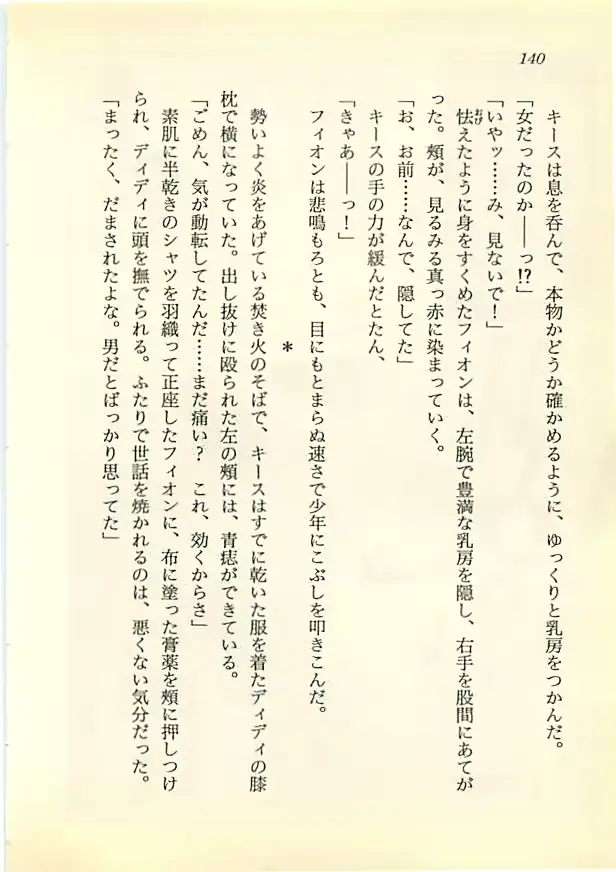 140
キースは息を呑んで、本物かどうか確かめるように、ゆっくりと乳房をつかんだ。
「女だったのか――っ!?」
「いやッ……み、見ないで！」
怯えたように身をすくめたフィオンは、左腕で豊満な乳房を隠し、右手を股間にあてが
った。頬が、見るみる真っ赤に染まっていく。
「お、お前……なんで、隠してた」
キースの手の力が緩んだとたん、
「きゃあ――っ！」
フィオンは悲鳴もろとも、目にもとまらぬ速さで少年にこぶしを叩きこんだ。
＊
勢いよく炎をあげている焚き火のそばで、キースはすでに乾いた服を着たディディの膝
枕で横になっていた。出し抜けに殴られた左の頬には、青痣ができている。
「ごめん、気が動転してたんだ……まだ痛い？　これ、効くからさ」
素肌に半乾きのシャツを羽織って正座したフィオンに、布に塗った膏薬を頬に押しつけ
られ、ディディに頭を撫でられる。ふたりで世話を焼かれるのは、悪くない気分だった。
「まったく、だまされたよな。男だとばっかり思ってた」